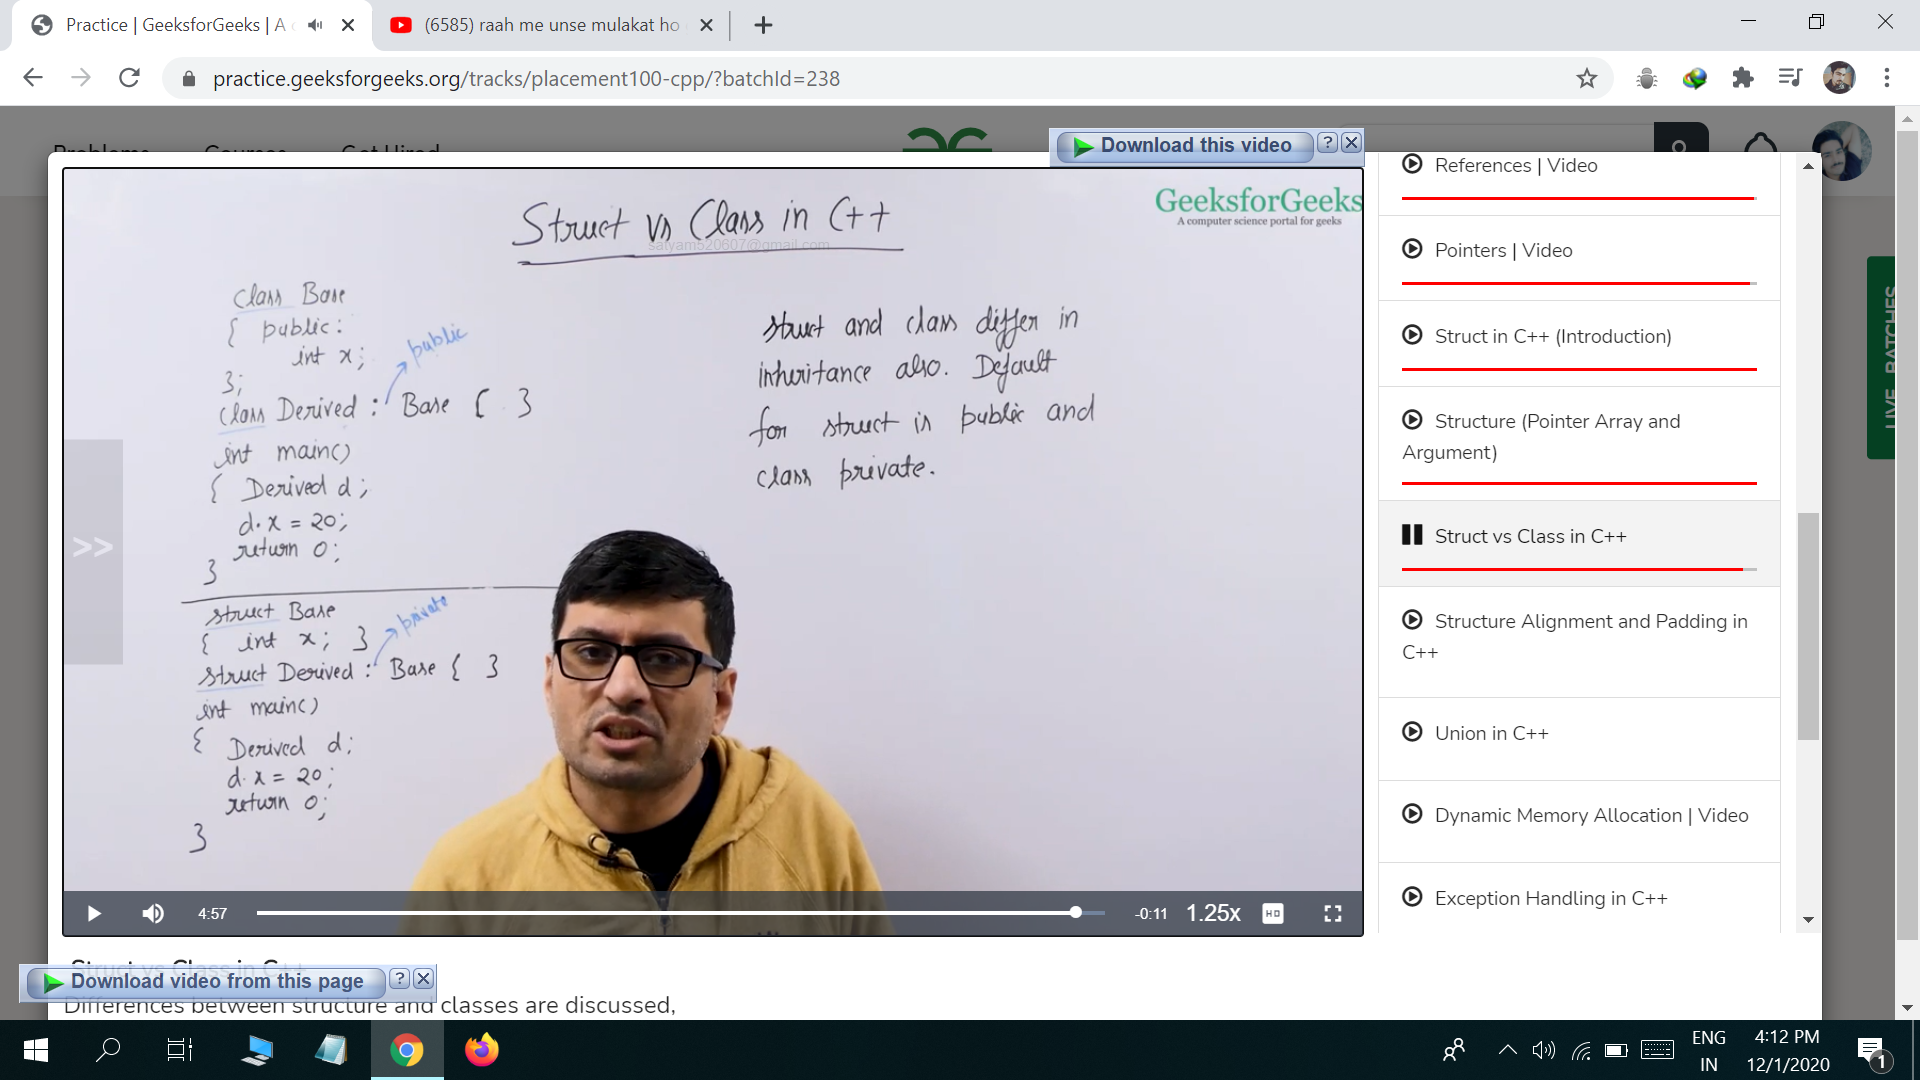 Practice | GeeksforGeeks | A c
(6585) raah me unse mulakat ho
practice.geeksforgeeks.org/tracks/placement100-cpp/?batchId=238
Problems Courses Get Hired
Download this video ?
GeeksforGeeks
A computer science portal for geeks
Struct vs Class in C++
satyam520607@gmail.com
class Base
{ public:
int x;
};
public
class Derived : Base { }
int main()
{ Derived d;
d.x = 20;
return 0;
}
struct Base
{ int x; }
private
struct Derived : Base { }
int main()
{ Derived d;
d.x = 20;
return 0;
}
struct and class differ in
inheritance also. Default
for struct is public and
class private.
>>
4:57
-0:11 1.25x HD
References | Video
Pointers | Video
Struct in C++ (Introduction)
Structure (Pointer Array and
Argument)
Struct vs Class in C++
Structure Alignment and Padding in
C++
Union in C++
Dynamic Memory Allocation | Video
Exception Handling in C++
LIVE BATCHES
Struct vs Class in C++
Download video from this page ?
Differences between structure and classes are discussed,
ENG
IN
4:12 PM
12/1/2020
1